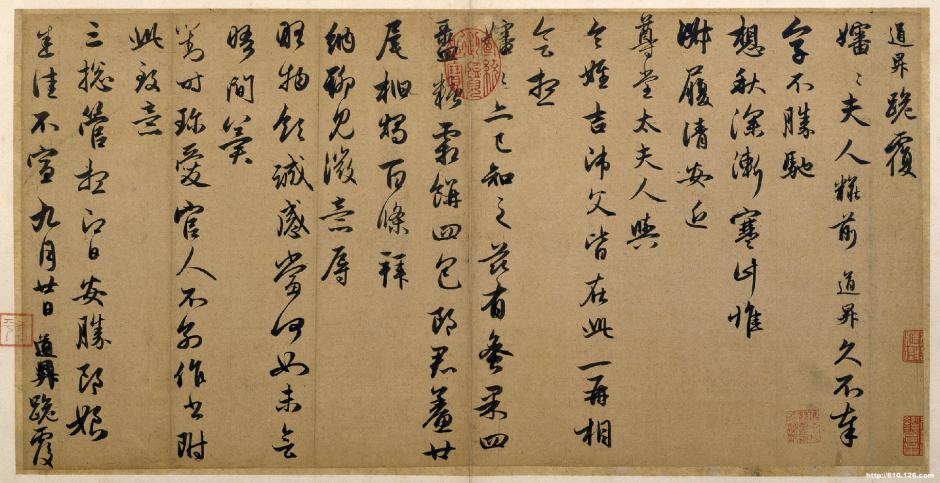 道昇跪覆
嬸〻夫人粧前道昇久不奉
字不勝馳
想秋深漸寒計惟
淑履清安近
尊堂太夫人與
令姪吉師父皆在此一再相
會想
嬸〻亦已知之茲有蜜果四
盝糖霜餅四包郎君鯗廿
尾柏燭百條拜
納聊見微意辱
物領誠感當何如未會
晤間冀
對時珍愛官人不別作書附
此致意
三總管想即日安勝郎娘
悉佳不宣九月廿日道昇跪覆
http://610.126.com